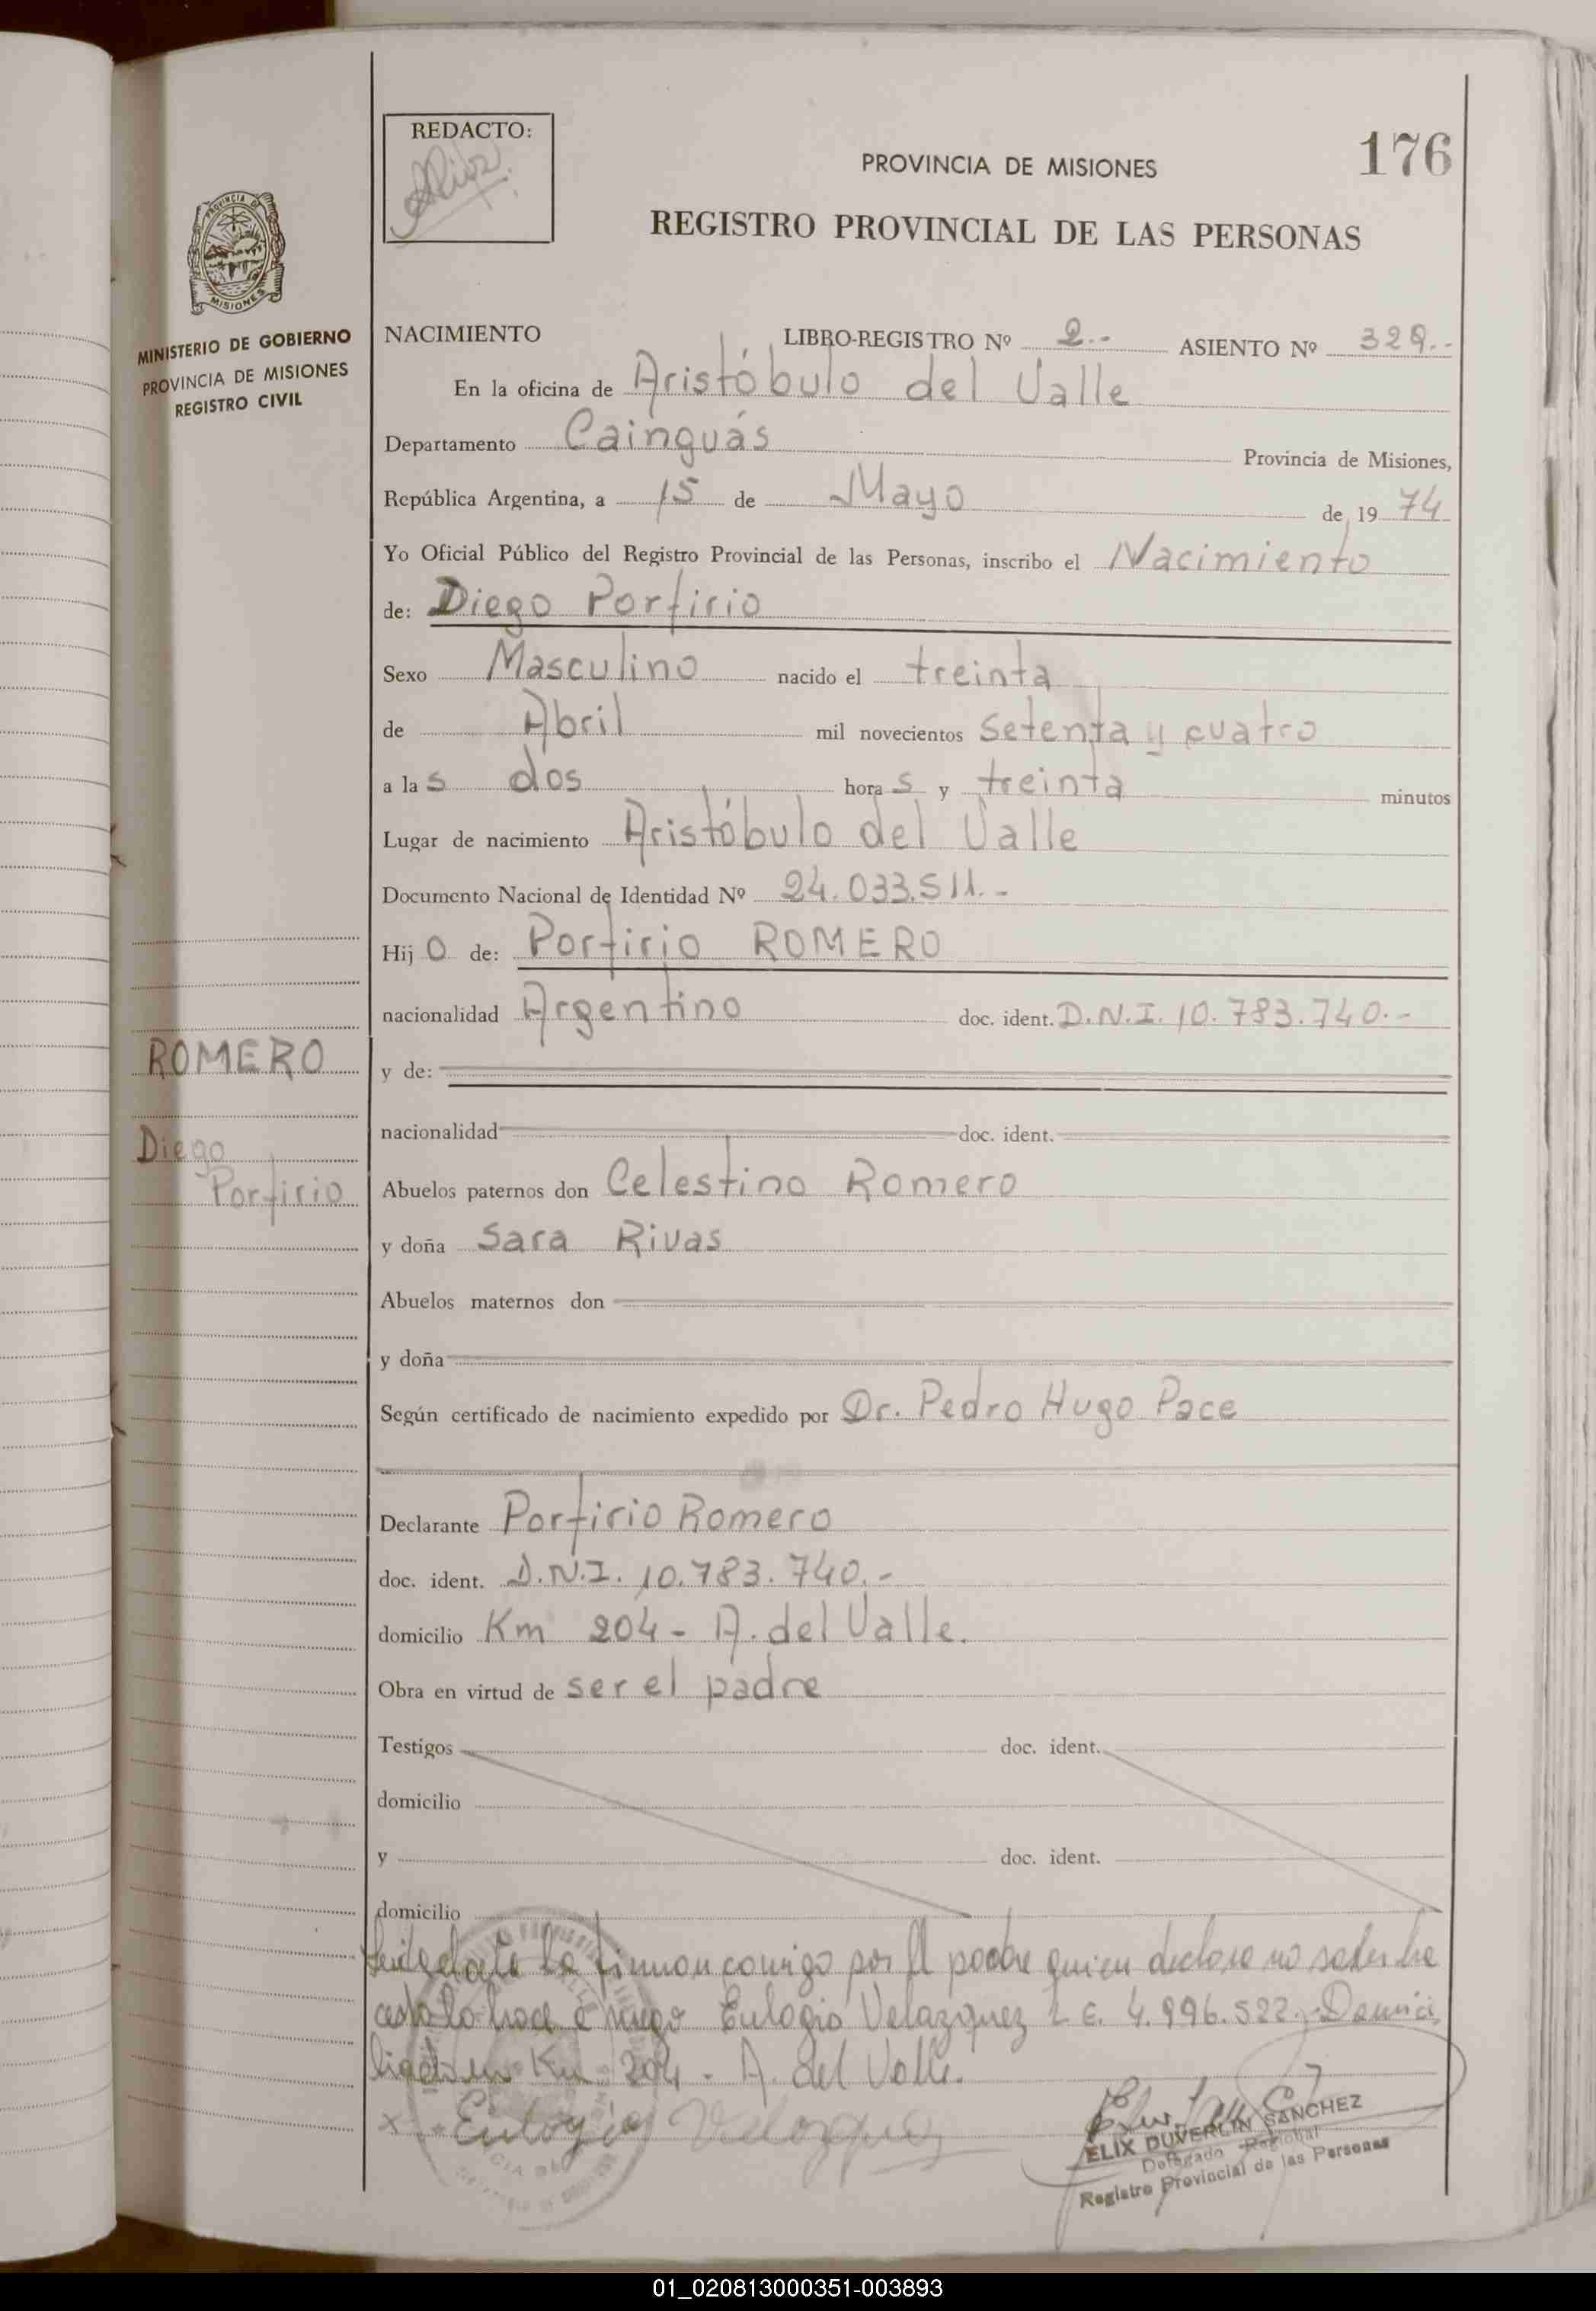 REDACTO:
PROVINCIA DE MISIONES
176
REGISTRO PROVINCIAL DE LAS PERSONAS
PROVINCIA DE
MISIONES
MINISTERIO DE GOBIERNO
PROVINCIA DE MISIONES
REGISTRO CIVIL
NACIMIENTO LIBRO-REGISTRO Nº 2.- ASIENTO Nº 329.-
En la oficina de Aristóbulo del Valle
Departamento Cainguás Provincia de Misiones,
República Argentina, a 15 de Mayo de 1974
Yo Oficial Público del Registro Provincial de las Personas, inscribo el Nacimiento
de: Diego Porfirio
Sexo Masculino nacido el treinta
de Abril mil novecientos setenta y cuatro
a las dos horas y treinta minutos
Lugar de nacimiento Aristóbulo del Valle
Documento Nacional de Identidad Nº 24.033.511.-
Hijo de: Porfirio ROMERO
nacionalidad Argentino doc. ident. D.N.I. 10.783.740.-
ROMERO
y de:
nacionalidad doc. ident.
Diego
Porfirio
Abuelos paternos don Celestino Romero
y doña Sara Rivas
Abuelos maternos don
y doña
Según certificado de nacimiento expedido por Dr. Pedro Hugo Pace
Declarante Porfirio Romero
doc. ident. D.N.I. 10.783.740.-
domicilio Km 204 - A. del Valle.
Obra en virtud de ser el padre
Testigos doc. ident.
domicilio
y doc. ident.
domicilio
la firman conmigo por el padre quien declara no saber ha
cerlo lo hace a ruego Eulogio Velazquez L.E. 4.996.522.- Domici
liado en Km 204 - A. del Valle.
x Eulogio Velazquez
ELIX DUVERLIN SANCHEZ
Delegado Regional
Registro Provincial de las Personas
01_020813000351-003893